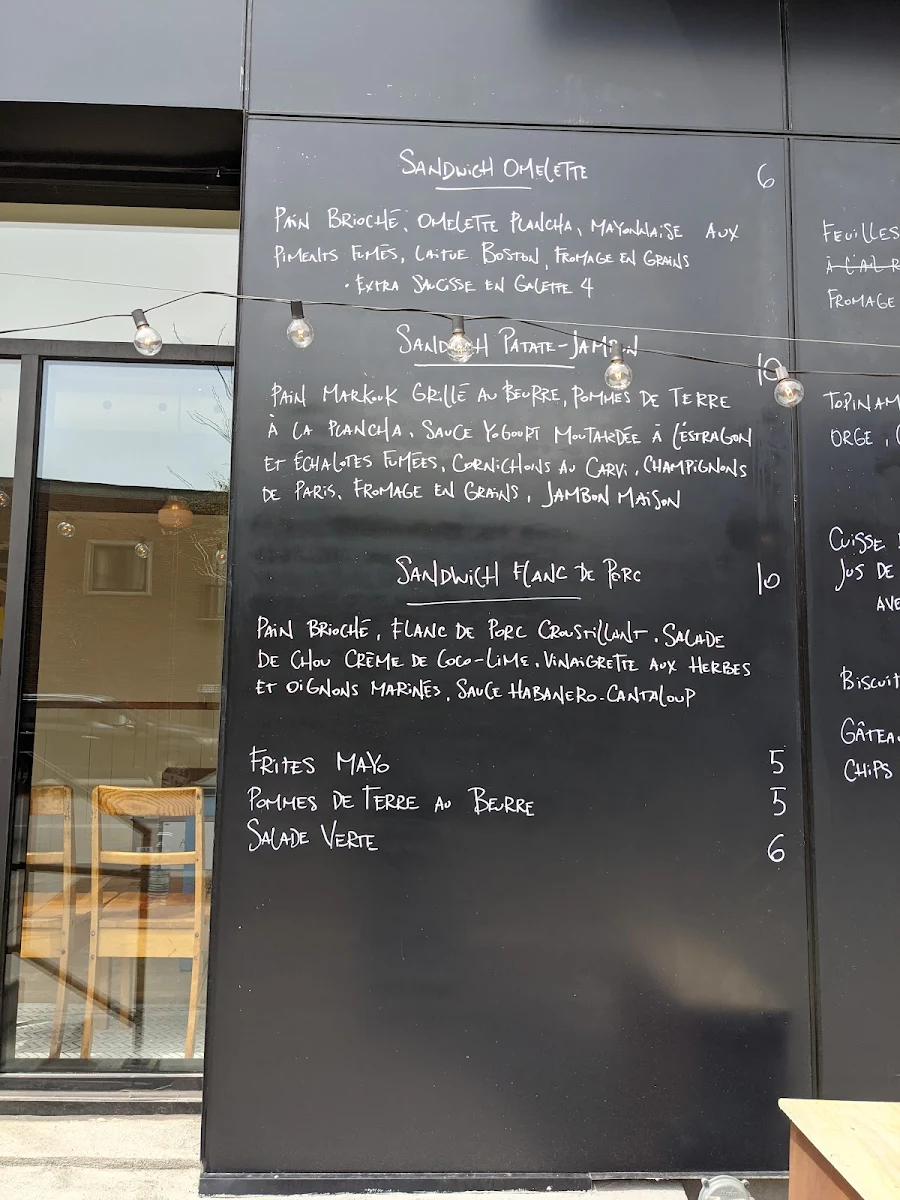 SANDWICH OMELETTE 6
PAIN BRIOCHÉ, OMELETTE PLANCHA, MAYONNAISE AUX
PIMENTS FUMÉS, LAITUE BOSTON, FROMAGE EN GRAINS
· EXTRA SAUCISSE EN GALETTE 4
SANDWICH PATATE-JAMBON 10
PAIN MARKOUK GRILLÉ AU BEURRE, POMMES DE TERRE
À LA PLANCHA, SAUCE YOGOURT MOUTARDÉE À L'ESTRAGON
ET ÉCHALOTES FUMÉES, CORNICHONS AU CARVI, CHAMPIGNONS
DE PARIS, FROMAGE EN GRAINS, JAMBON MAISON
SANDWICH FLANC DE PORC 10
PAIN BRIOCHÉ, FLANC DE PORC CROUSTILLANT, SALADE
DE CHOU CRÈME DE COCO-LIME, VINAIGRETTE AUX HERBES
ET OIGNONS MARINÉS, SAUCE HABANERO-CANTALOUP
FRITES MAYO 5
POMMES DE TERRE AU BEURRE 5
SALADE VERTE 6
FEUILLES
À L'AIL
FROMAGE
TOPINAM
ORGE,
CUISSE
JUS DE
AVE
BISCUIT
GÂTEAU
CHIPS